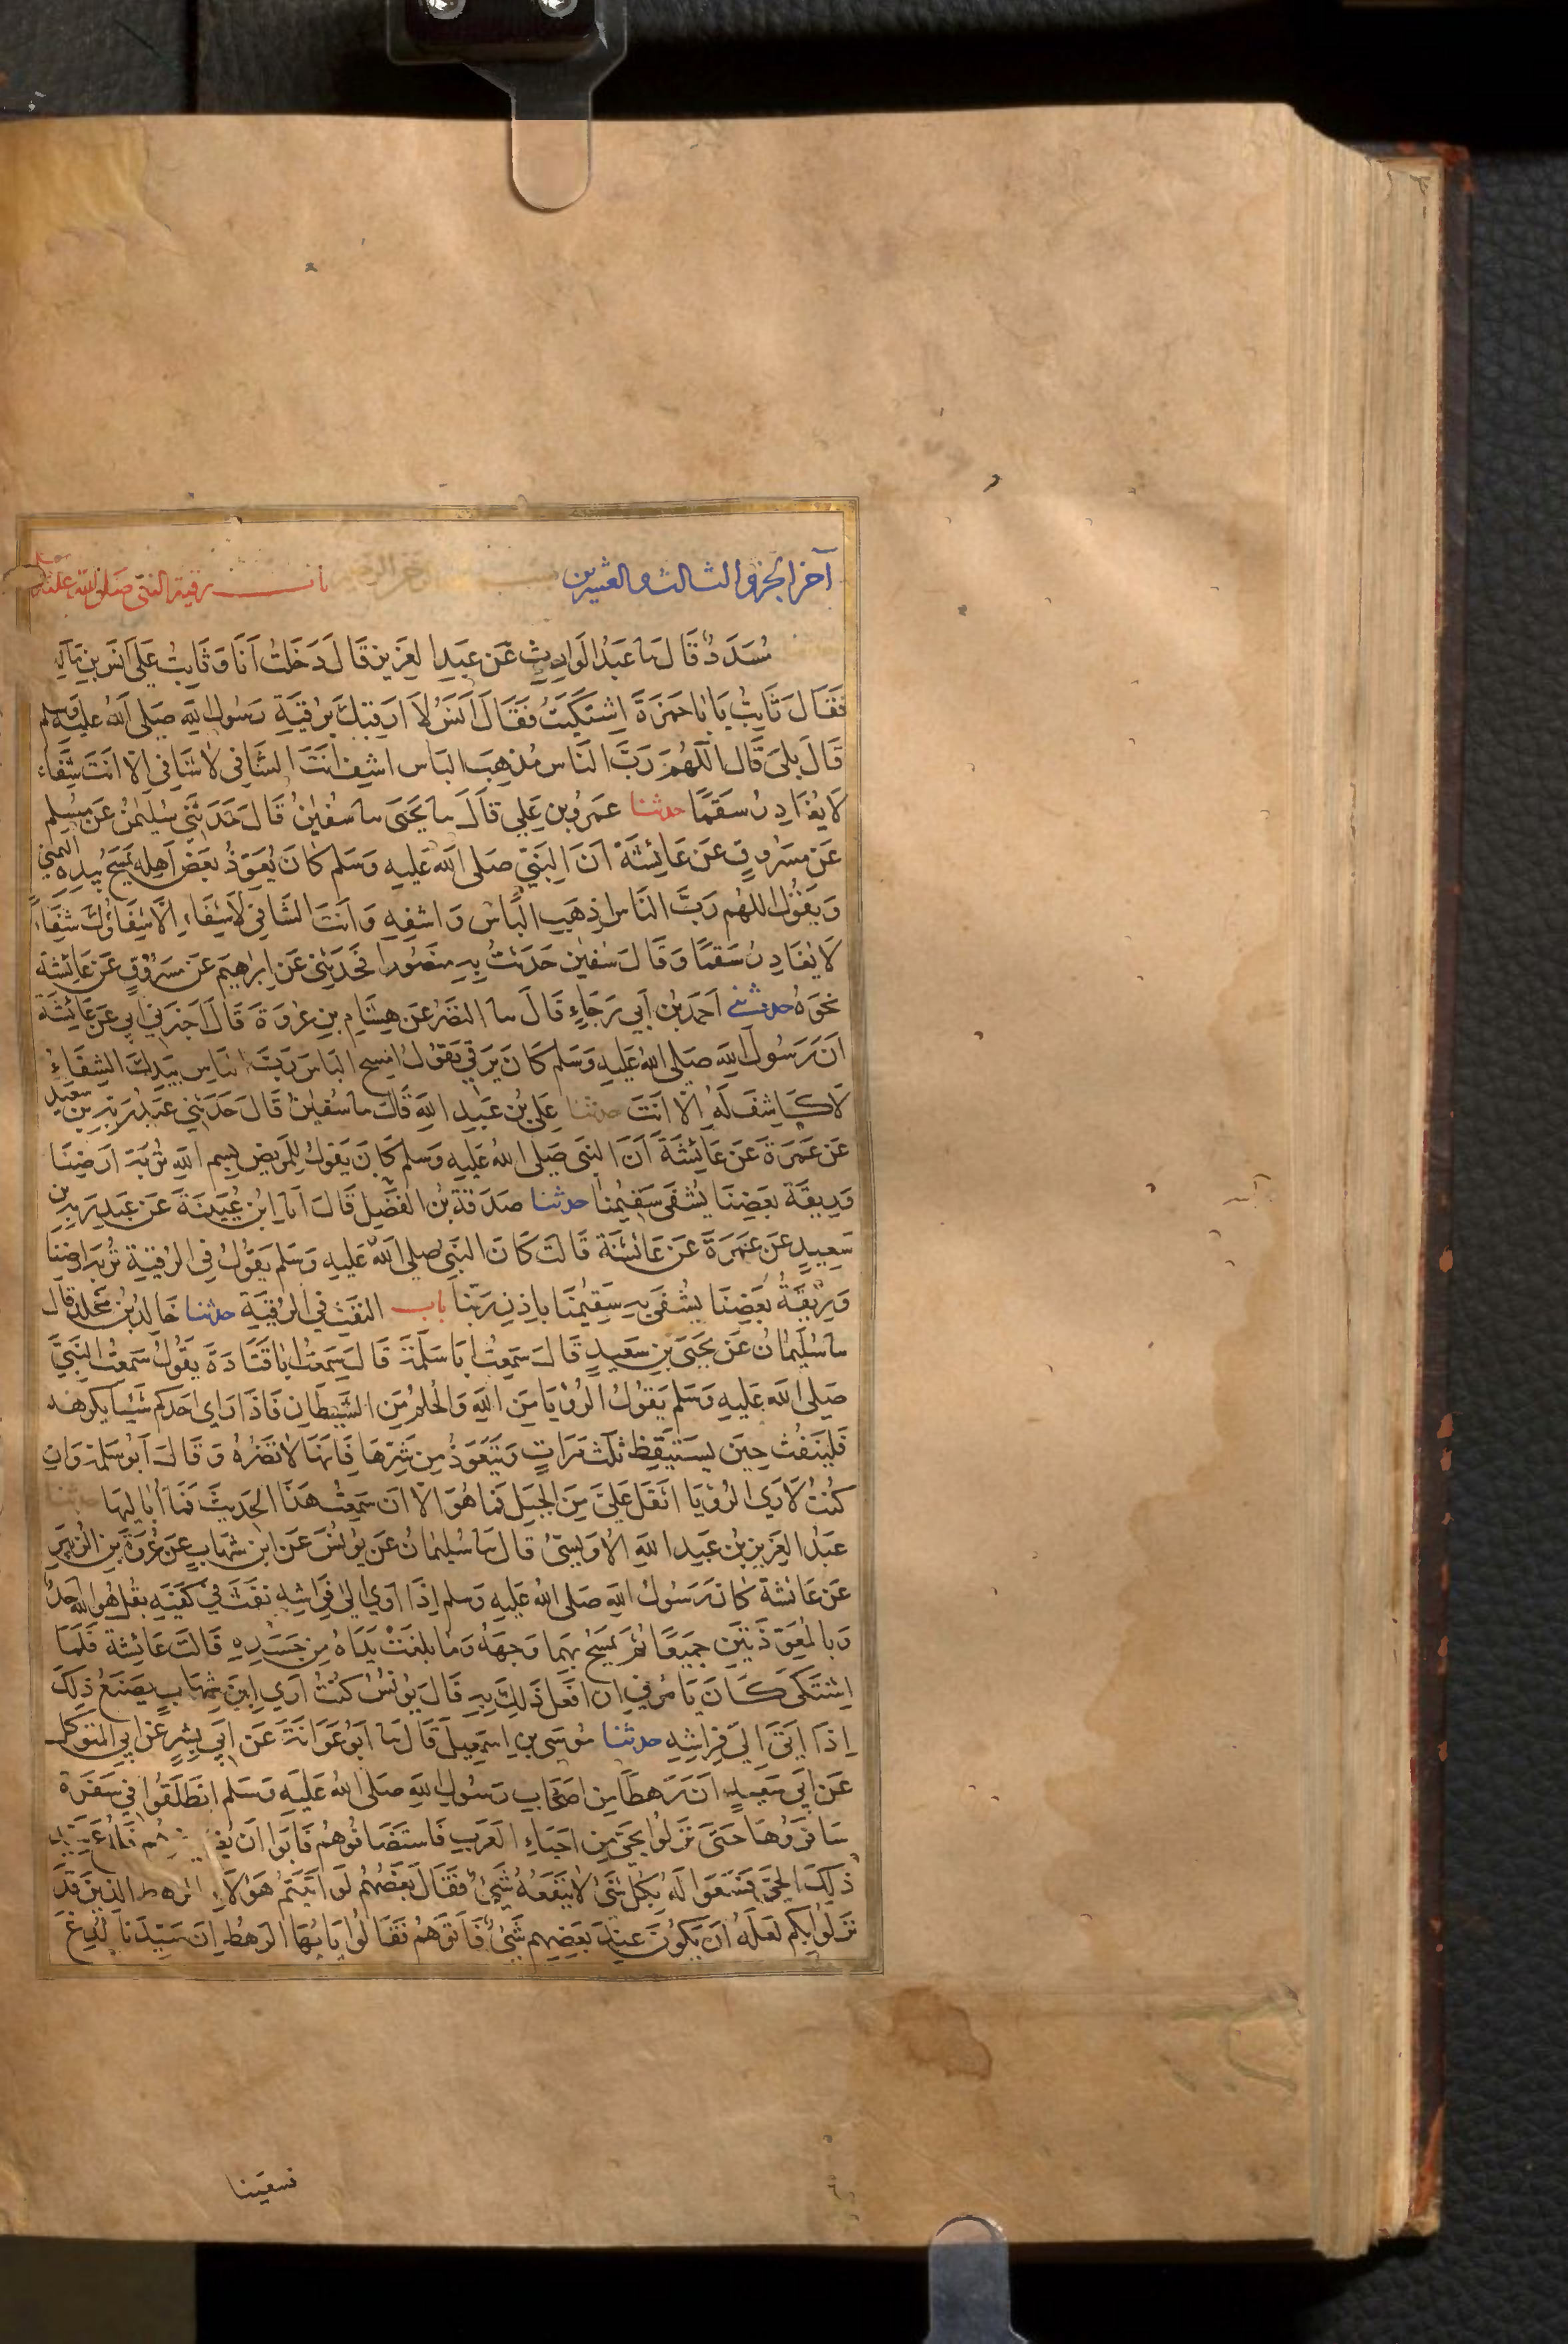 آخر الجزو الثالث والعشرين باب رقية النبي صلى الله عليه وسلم
مُسَدَدٌ قَالَ ما عَبْدُ الوَارِثِ عَن عَبدِ العَزِيزِ قَالَ دَخَلتُ اَنَا وَثَابِتُ عَلَى اَنَسِ بنِ مَالِكِ
فَقَالَ ثَابِتُ يَا بَا حَمزَةَ اِشتَكَيتُ فَقَالَ اَنَسُ لاَ اَرقيكَ بِرُقيَةِ رَسُولِ اللهِ صَلى اللهُ عَليهِ وَسلم
قَالَ بلَى قَالَ اللّهُمَ رَبَّ النَاسِ مُذهِبَ البَاسِ اشفِ انتَ الشَافِي لاَ شَافِي اِلاّ انتَ شِفَاءً
لاَ يُغَادِرُ سَقَمًا حدثنا عَمرُو بن عَلِي قَالَ ما يَحيَى ما سُفيٰنُ قَالَ حَدَثَني سُلَيمٰنُ عَن مُسلِم
عَن مسَرُوقٍ عَن عَائِشَةَ اَنَ النَبِيَّ صَلى الله عَليهِ وَسَلم كَانَ يُعَوِّذُ بَعضَ اَهلِه يَمسَحُ بِيَدِهِ اليمنى
وَيَقُولُ اللهُم رَبَّ النَاسِ اذهِبِ البَاسَ وَاشفِهِ وَاَنتَ الشَافي لاَ شِفَاءَ اِلاَّ شِفَاؤُكَ شِفَاءً
لاَ يُغَادِرُ سَقَمًا وَقَالَ سُفيٰن حَدَثتُ بِهِ مَنصُورًا فَحَدَثَنِي عَن اِبرٰهِيمَ عَن مَسرُوقٍ عَن عَائِشَةَ
نحوَهُ حدثني اَحمَدُ بنُ اَبي رَجَاءٍ قَالَ ما النَضرُ عَن هِشَامِ بنِ عُروَةَ قَالَ اَخبَرَني اَبِي عَن عَائِشَةَ
اَنَ رَسُولَ اللهِ صَلى اللهُ عَليهِ وَسَلم كَانَ يَرقِي يَقُولُ امسحِ البَاسَ رَبَّ النَاسِ بِيَدِكَ الشِفَاءُ
لاَ كَاشِفَ لَهُ اِلاّ اَنتَ حدثنا عَلِيُ بنُ عَبدِ اللهِ قَالَ ما سُفيٰنُ قَالَ حَدَثَنِي عَبدُ رَبِّهِ بن سَعِيد
عَن عَمرَةَ عَن عَائِشَةَ اَنَ النبَي صَلى اللهُ عَليهِ وَسَلم كَانَ يَقُولُ لِلمَرِيضِ بِسمِ اللهِ تُربَة اَرضِنَا
وَرِيقَة بَعضِنَا يُشفَى سَقِيمُنَا حدثنا صَدَقَةُ بنُ الفَضلِ قَالَ اَنا اِبنُ عُيَينَةَ عَن عَبدِ رَبِّهِ بن
سَعِيدٍ عَن عَمرَةَ عَن عَائشَة قَالَت كَانَ النَبيُ صلى اللهُ عَليهِ وَسَلم يَقُولُ فِي الرُقيَةِ تُربَة اَرضِنَا
وَرِيقَةُ بَعضِنَا يُشفَى بهِ سَقِيمُنَا بِاِذنِ رَبّنَا باب النَفثِ في الرُقيَةِ حدثنا خَالِدُ بنُ مَخلَدٍ قال
ما سُلَيمَانُ عَن يَحيَى بنِ سَعِيدٍ قَالَ سَمِعتُ اَبَا سَلَمَةَ قَالَ سَمِعتُ ابَا قَتَادَةَ يَقُولُ سَمِعتُ النَبِيَّ
صَلى الله عَليهِ وَسَلم يَقُولُ الرُؤيَا مِنَ اللهِ وَالحُلمُ مِنَ الشَيطَانِ فَاذَا رَاى اَحَدكُم شَيئًا يكرههُ
فَليَنفُث حِينَ يَستَيقِظ ثلٰث مَرَاتٍ وَيَتَعَوَّذُ مِن شَرِّهَا فَاِنهَا لاَ تَضُرُهُ وَقَالَ اَبُو سَلمة وَان
كُنتُ لاَرَى الرُؤيَا اثقَلَ عَليَّ مِنَ الجَبَل فَمَا هُوَ الاّ ان سَمِعتُ هَذَا الحَدِيثَ فَمَا اُبَالِيهَا حدثنا
عَبدُ العَزِيزِ بنُ عَبدِ اللهِ الاُوَيسِيُّ قَالَ ما سُلَيمَانُ عَن يُونُسَ عَن ابنِ شِهَابٍ عَن عُروَةَ بنِ الزُبَيرِ
عَن عَائشَة كَانَ رَسُولُ اللهِ صَلى اللهُ عَليهِ وَسلم اِذَا اَوَى اِلىٰ فِرَاشِهِ نَفَثَ فِي كَفَّيهِ بقُل هُو الله اَحَدٌ
وَبِالمعَوِّذَتَين جَمِيعًا ثُمَّ يَمسَحُ بِهِمَا وَجهَهُ وَمَا بَلَغَتْ يَدَاهُ مِن جَسَدِهِ قَالَت عَائِشَة فَلَمَا
اِشتَكَى كَانَ يَامُرُنِي ان افعَلَ ذَلِكَ بِهِ قَالَ يُونُسُ كُنتُ اَرَي اِبنَ شِهَابٍ يَصنَعُ ذٰلِكَ
اِذَا اَتَى اِلَى فِرَاشِهِ حدثنا مُوسَى بن اِسمٰعِيلَ قَالَ ما اَبُو عَوَانَةَ عَن اَبِي بِشرٍ عَن اَبِي المُتَوَكل
عَن اَبِي سَعِيدٍ اَنَ رَهطًا مِن اصَحَابِ رَسُولِ اللهِ صَلى اللهُ عَليهِ وَسَلم انطَلَقُوا فِي سَفرَة
سَافَرُوهَا حَتىَ نَزَلُوا بِحَيّ مِن اَحيَاءِ العَرَبِ فَاستَضَافُوهُم فَابَوا اَن
ذٰلِكَ الحَيِّ فَسَعَوا لَهُ بِكلِ شَيْ لاَ يَنفَعُهُ شَيْ فَقَالَ بَعضُهُم لَو اَتَيتُم هَؤلاَءِ الرهط الذِينَ قَد
نَزَلُوا بِكم لَعَلَهُ اَن يَكُونَ عِندَ بَعضِهِم شَيْ فَاتَوهُم فَقَالُوا يَا ايُهَا الرَهطُ اِنَ سَيِّدَنَا لُدِغَ
فسعينا